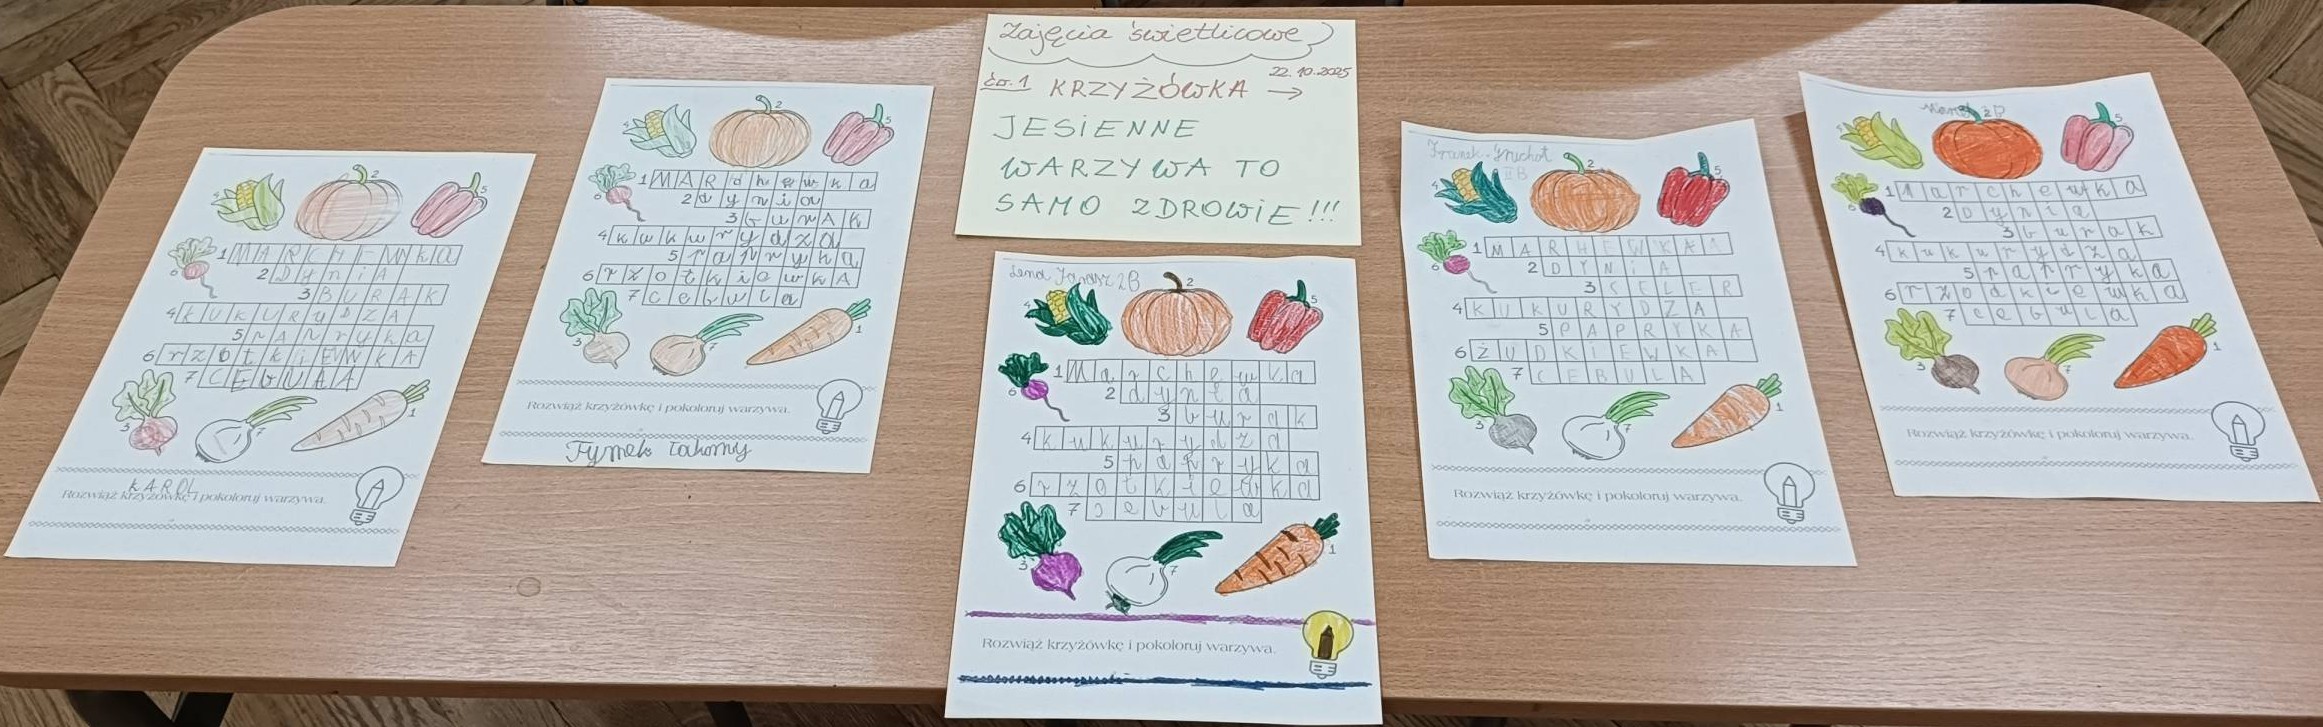 Zajęcia świetlicowe
22.10.2025
ćw. 1 KRZYŻÓWKA →
JESIENNE
WARZYWA TO
SAMO ZDROWIE!!!
4 2 5
6
1 MARCHEWka
2 DyniA
3 BURAK
4 kUKURyDZA
5 pApryka
6 rzotkiEWKA
7
3 7 1
KAROL
Rozwiąż krzyżówkę i pokoloruj warzywa.
4 2 5
6
1 MARchewka
2 dynia
3 burAk
4 kukurydza
5 papryka
6 rzotkiewkA
7 cebula
3 7 1
Rozwiąż krzyżówkę i pokoloruj warzywa.
Tymek
Lena 2B
4 2 5
6
1 Marchewka
2 dynia
3 burak
4 kukurydza
5 papryka
6 rzotkiewka
7 cebula
3 7 1
Rozwiąż krzyżówkę i pokoloruj warzywa.
Franek
II B
4 2 5
6
1 MARHEWKA
2 DYNiA
3 SELER
4 KUKURYDZA
5 PAPRYKA
6 ŻUDKiEWKA
7 CEBULA
3 7 1
Rozwiąż krzyżówkę i pokoloruj warzywa.
4 2 5
6
1 Marchewka
2 Dynia
3 burak
4 kukurydza
5 papryka
6 rzodkiewka
7 cebula
3 7 1
Rozwiąż krzyżówkę i pokoloruj warzywa.